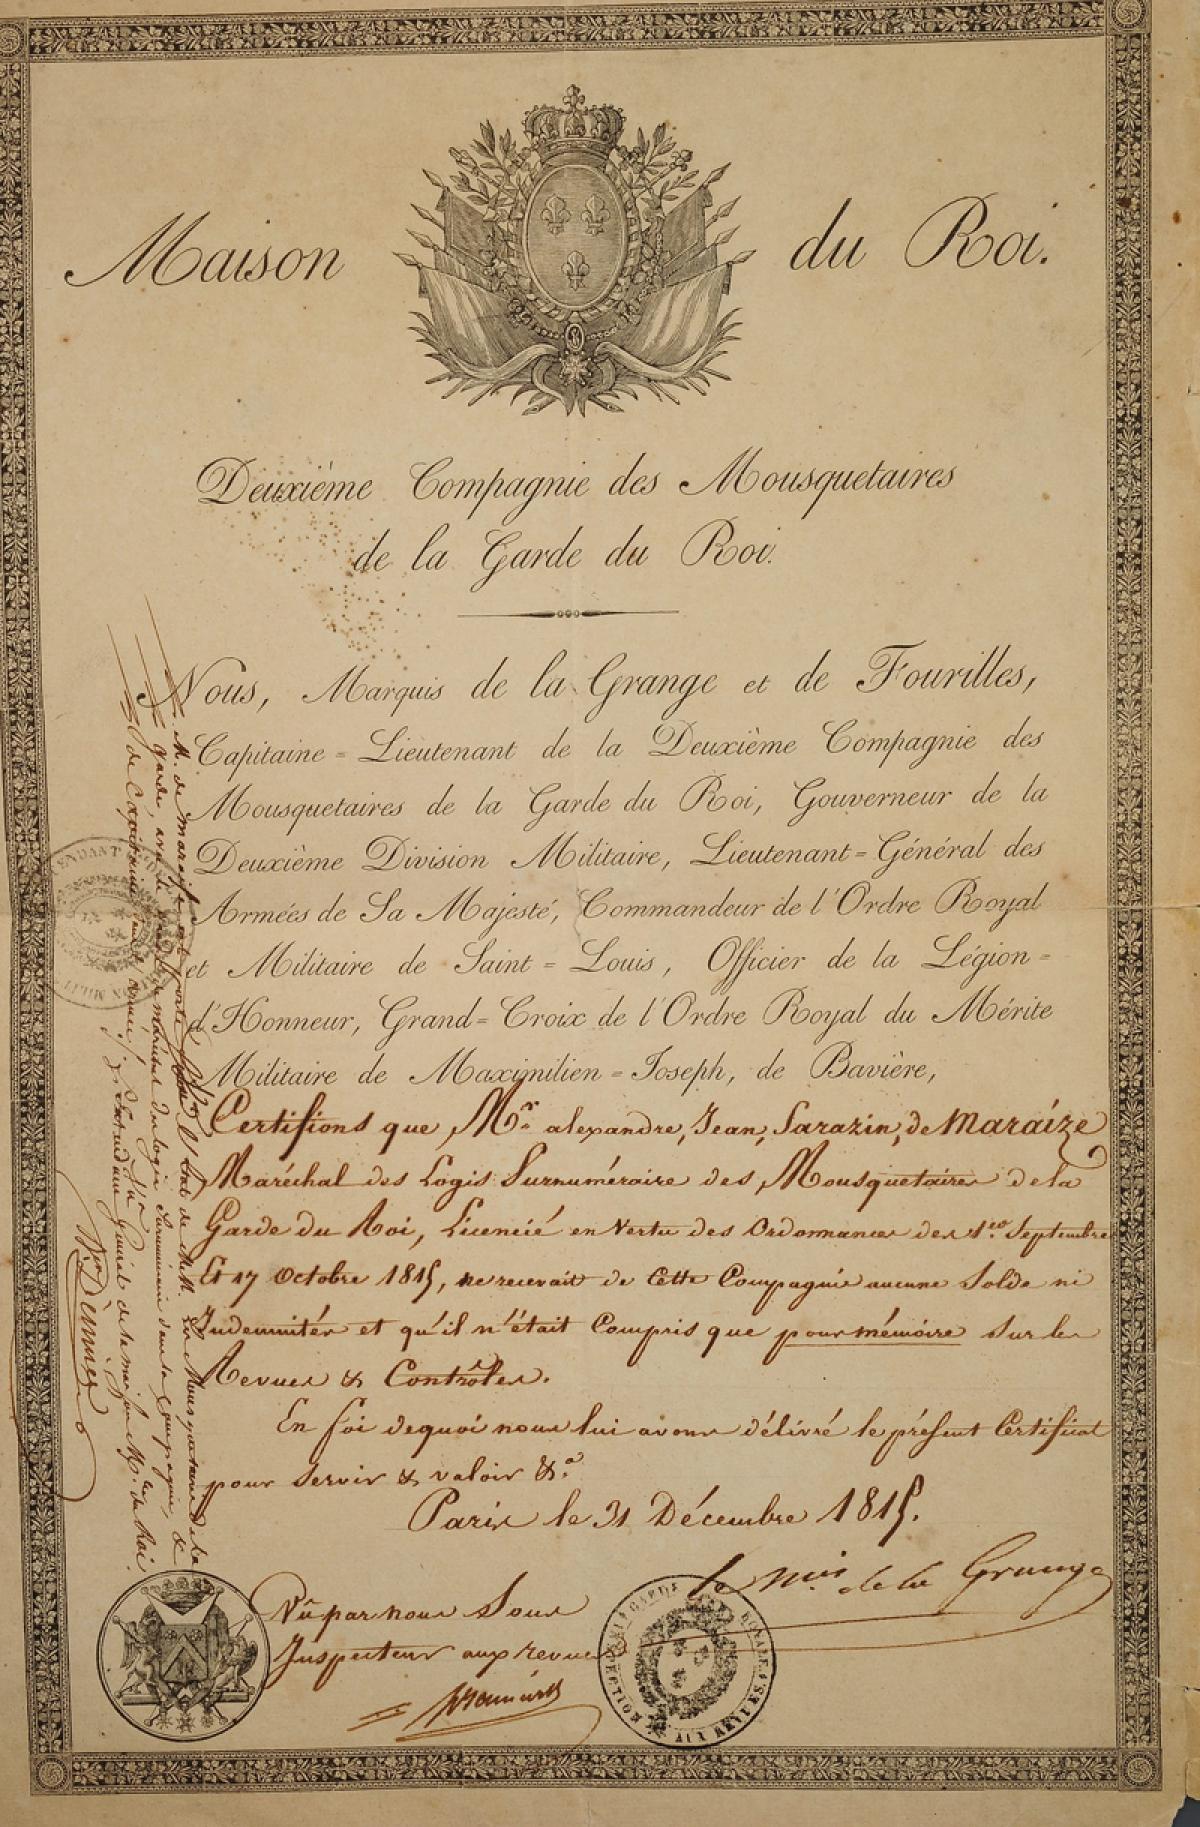 Maison du Roi.
Deuxième Compagnie des Mousquetaires
de la Garde du Roi.
Nous, Marquis de la Grange et de Fourilles,
Capitaine = Lieutenant de la Deuxième Compagnie des
Mousquetaires de la Garde du Roi, Gouverneur de la
Deuxième Division Militaire, Lieutenant = Général des
Armées de Sa Majesté, Commandeur de l'Ordre Royal
et Militaire de Saint = Louis, Officier de la Légion =
d'Honneur, Grand = Croix de l'Ordre Royal du Mérite
Militaire de Maximilien = Joseph, de Bavière,
Certifions que Mr. alexandre, Jean, Sarazin, de Maraize
Maréchal des Logis Surnuméraire des Mousquetaires de la
Garde du Roi, Licencié en Vertu des Ordonnances des 1er. Septembre
Et 17 Octobre 1815, ne recevait de Cette Compagnie aucune Solde ni
Indemnités et qu'il n'était Compris que pour mémoire sur les
Revues & Contrôles.
En foi de quoi nous lui avons délivré le présent Certificat
pour servir & valoir &a.
Paris le 31 Décembre 1815.
le Mis. de la Grange
Vû par nous Sous
Inspecteur aux revues
M. de Maraize est porté l'état de MM. les Mousquetaires de la
garde, avec le de maréchal des logis Surnuméraire dans la compagnie, &
de Capitaine dans l'armée.
L'Intendant Général de la maison Mre. du Roi.
INSPECTION AUX REVUES GARDE ROYALE